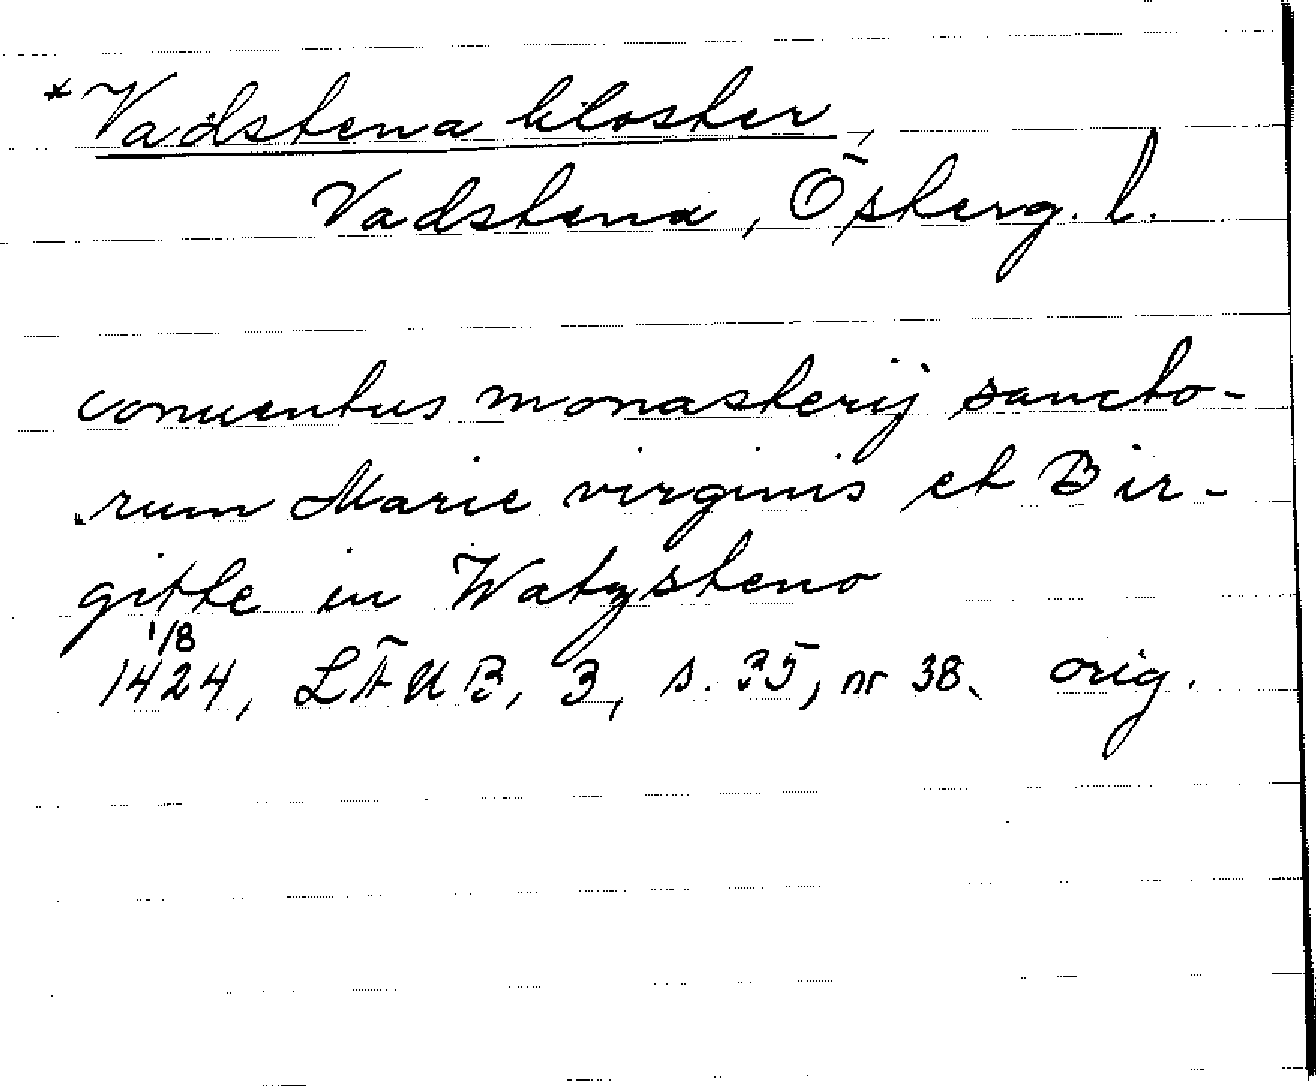 *Vadstena kloster,
Vadstena, Östergl. l.
conuentus monasterij sancto-
rum Marie virginis et Bir-
gitte in Watzsteno
1/8
1424, LÄUB, 3, s. 35, nr 38. orig.